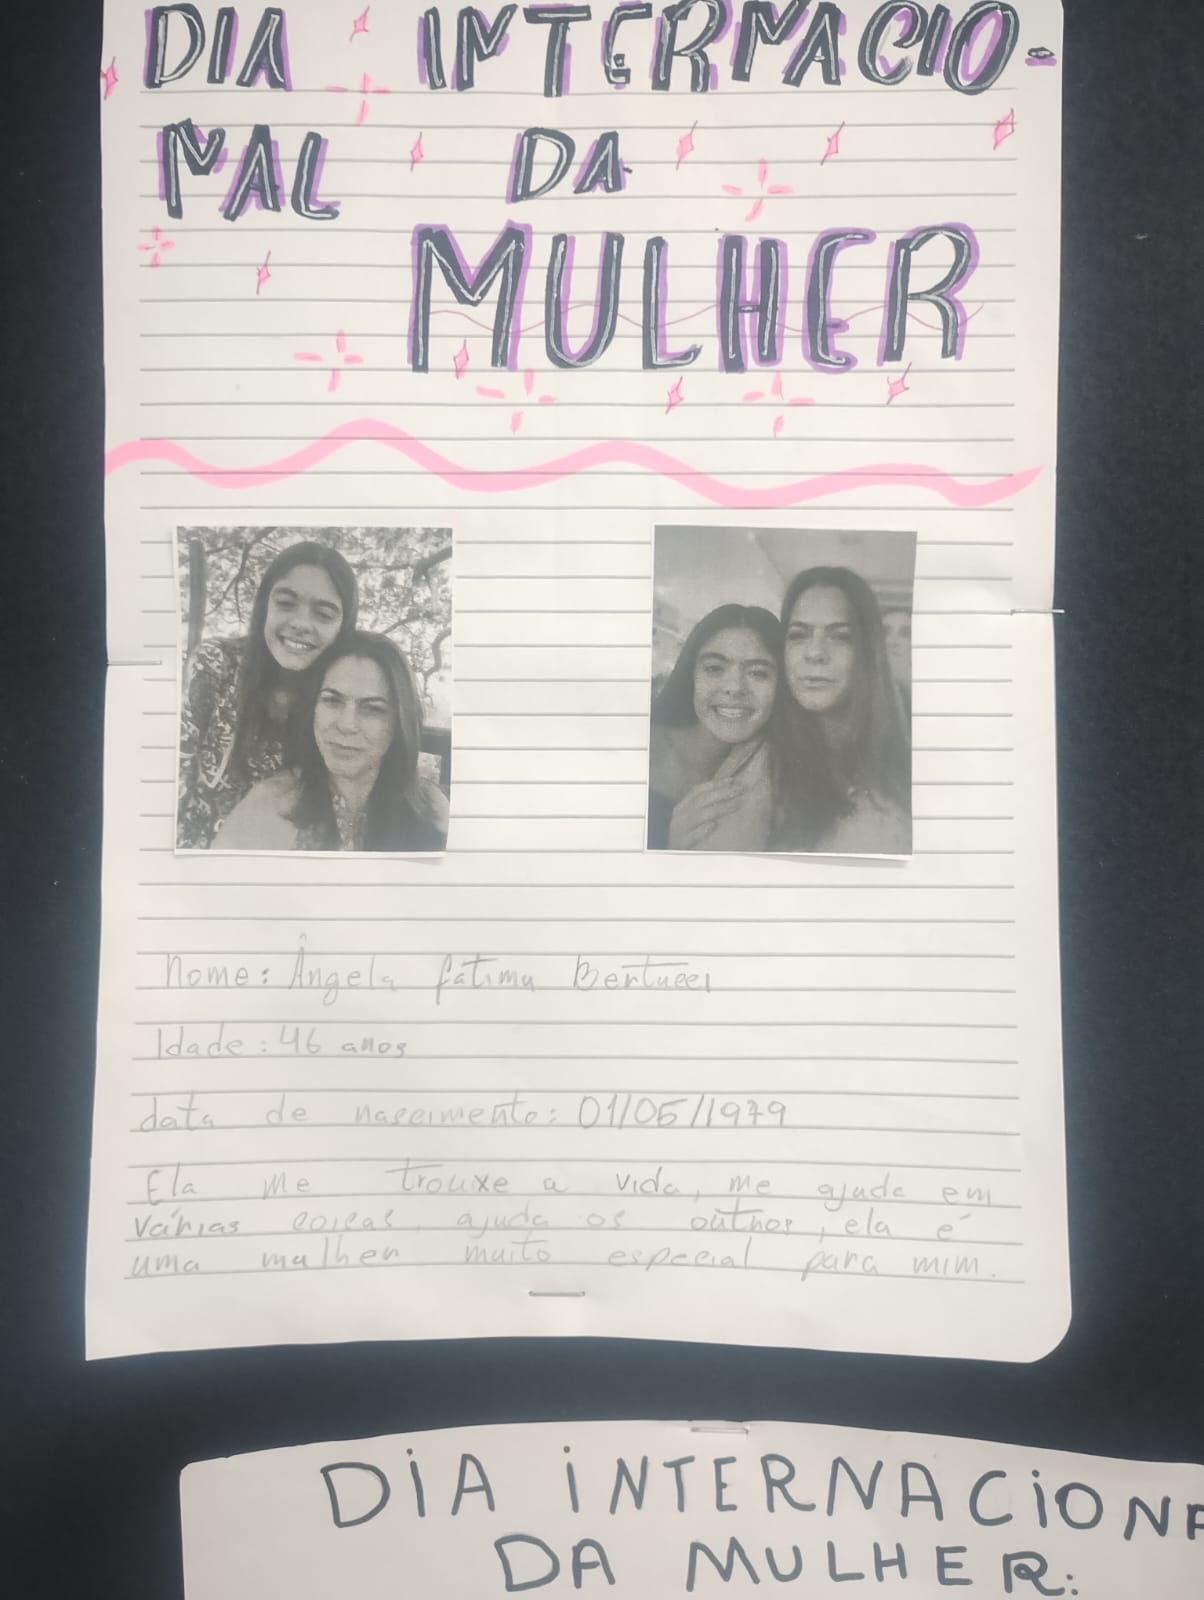 DIA INTERNACIO-
NAL DA
MULHER
Nome: Ângela fátima Bertucci
Idade: 46 anos
data de nascimento: 01/05/1979
Ela me trouxe a vida, me ajuda em
várias coisas, ajuda os outros, ela é
uma mulher muito especial para mim.
DIA INTERNACIONA
DA MULHER: